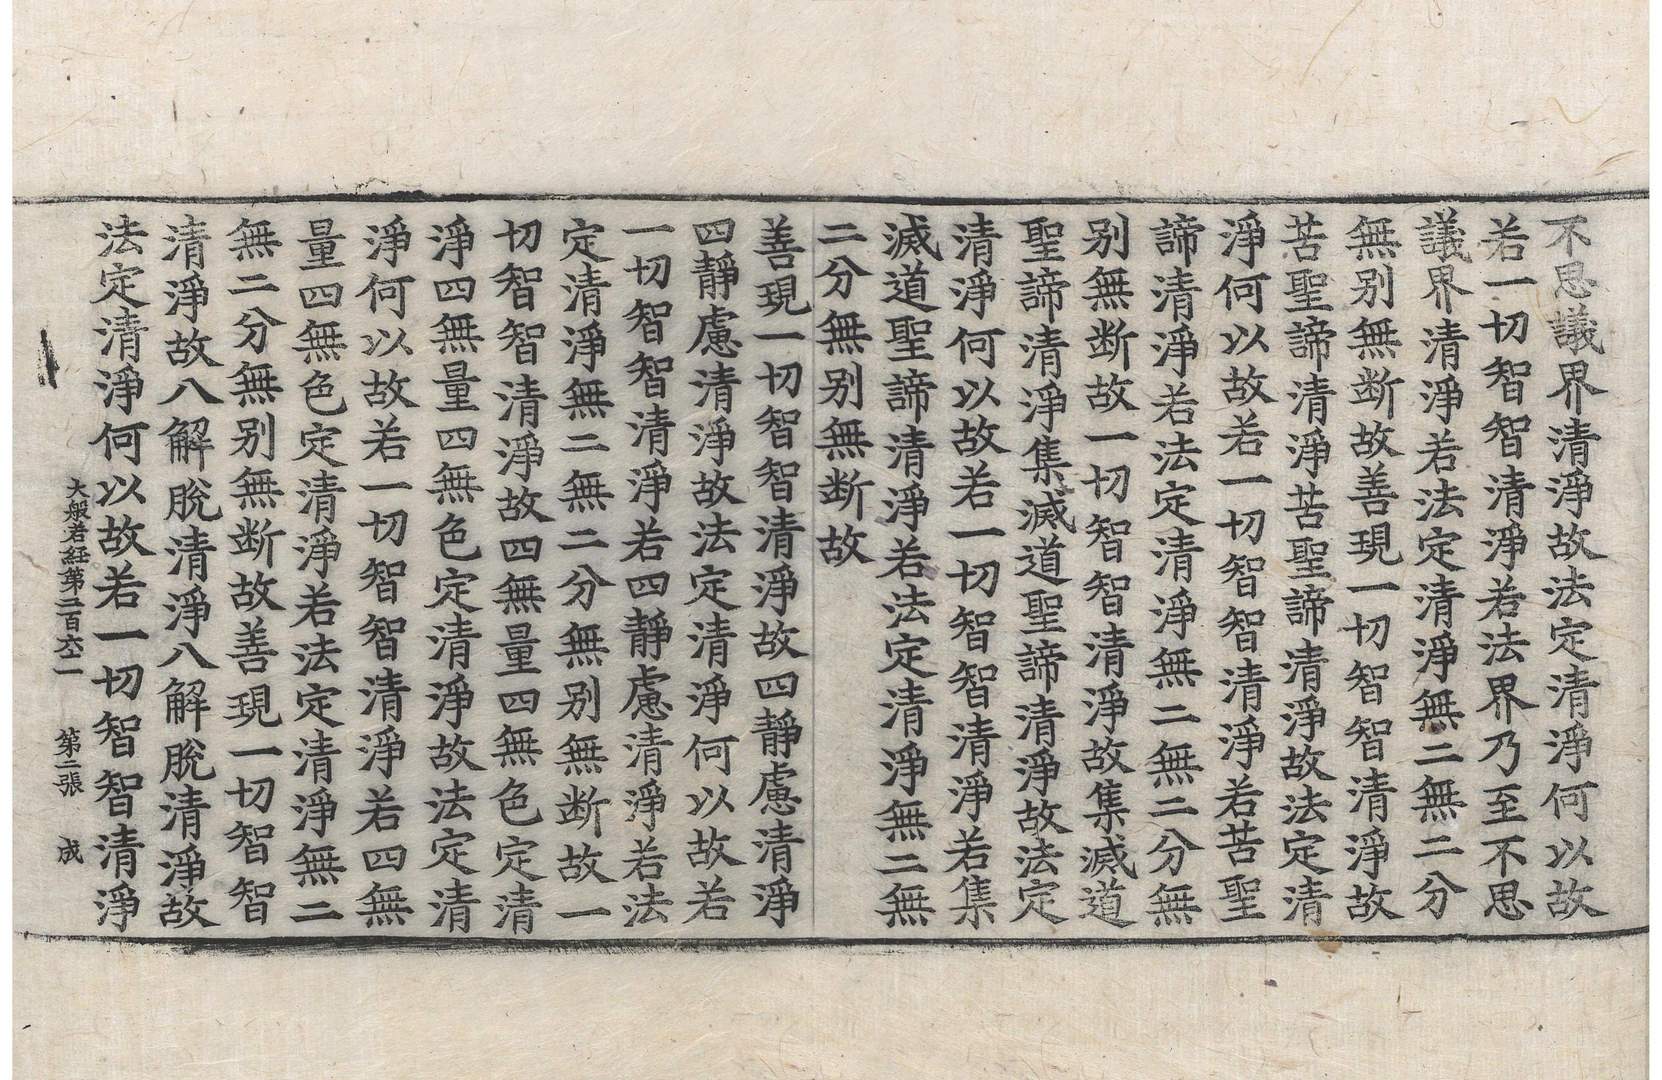 不思議界清淨故法定清淨何以故
若一切智智清淨若法界乃至不思
議界清淨若法定清淨無二無二分
無別無断故善現一切智智清淨故
苦聖諦清淨苦聖諦清淨故法定清
淨何以故若一切智智清淨若苦聖
諦清淨若法定清淨無二無二分無
別無断故一切智智清淨故集滅道
聖諦清淨集滅道聖諦清淨故法定
清淨何以故若一切智智清淨若集
滅道聖諦清淨若法定清淨無二無
二分無別無断故
善現一切智智清淨故四靜慮清淨
四靜慮清淨故法定清淨何以故若
一切智智清淨若四靜慮清淨若法
定清淨無二無二分無別無断故一
切智智清淨故四無量四無色定清
淨四無量四無色定清淨故法定清
淨何以故若一切智智清淨若四無
量四無色定清淨若法定清淨無二
無二分無別無断故善現一切智智
清淨故八解脫清淨八解脫清淨故
大般若経第二百六二 第二張 成
法定清淨何以故若一切智智清淨